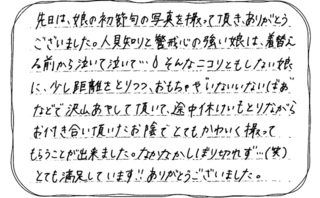 先日は、娘の初節句の写真を撮って頂き、ありがとう
ございました。人見知りと警戒心の強い娘は、着替え
る前から泣いて泣いて…💧そんなニコリともしない娘
に、少し距離をとりつつ、おもちゃや"いないいないばあ"
などで沢山あやして頂いて、途中休けいもとりながら
お付き合い頂いたお陰でとてもかわいく撮って
もらうことが出来ました。なかなかしぼり切れず…(笑)
とても満足しています!!ありがとうございました。